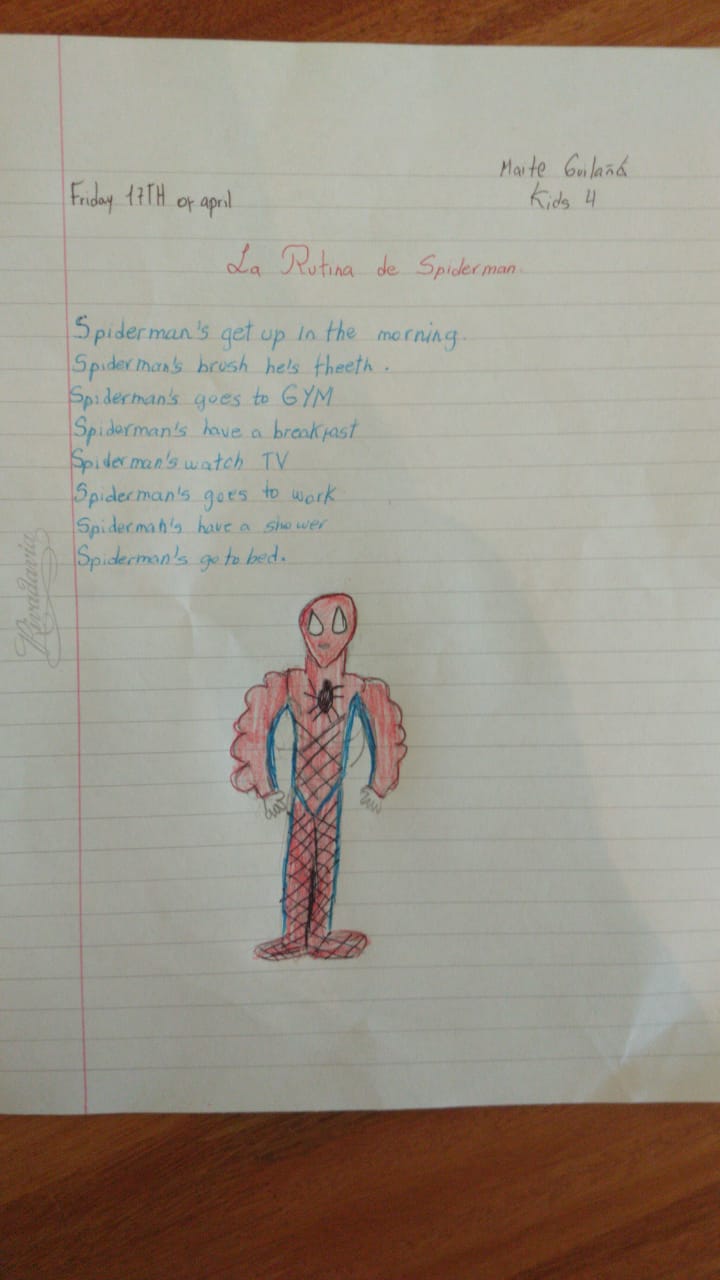 Maite Guilañá
Kids 4
Friday 17TH of april
La Rutina de Spiderman.
Spiderman's get up in the morning.
Spiderman's brush he's theeth.
Spiderman's goes to GYM
Spiderman's have a breakfast
Spiderman's watch TV
Spiderman's goes to work
Spiderman's have a shower
Spiderman's go to bed.
Rivadavia